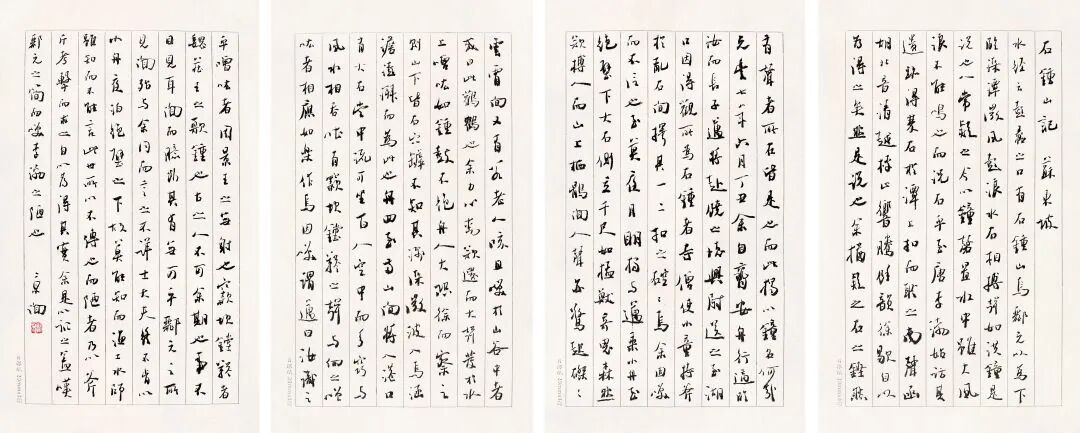 石鍾山記　蘇東坡
水經云彭蠡之口有石鍾山焉酈元以為下
臨深潭微風鼓浪水石相搏聲如洪鍾是
說也人常疑之今以鐘磬置水中雖大風
浪不能鳴也而況石乎至唐李渤始訪其
遺踪得雙石於潭上扣而聆之南聲函
胡北音清越桴止響騰餘韻徐歇自以
為得之矣然是說也余猶疑之石之鏗然
有聲者所石皆是也而此獨以鐘名何哉
元豐七年六月丁丑余自齊安舟行適臨
汝而長子邁將赴饒之德興尉送之至湖
口因得觀所為石鍾者寺僧使小童持斧
於亂石間擇其一二扣之硿硿焉余固笑
而不信也至莫夜月明獨與邁乘小舟至
絕壁下大石側立千尺如猛獸奇鬼森然
欲搏人而山上栖鶻聞人聲亦驚起磔磔
雲霄間又有若老人咳且笑於山谷中者
或曰此鸛鶴也余方心動欲還而大聲發於水
上噌吰如鍾鼓不絕舟人大恐徐而察之
則山下皆石穴罅不知其淺深微波入焉涵
澹澎湃而為此也舟回至兩山間將入港口
有大石當中流可坐百人空中而多竅與
風水相吞吐有窾坎鏜鞳之聲與向之噌
吰者相應如樂作焉因笑謂邁曰汝識之
乎噌吰者周景王之無射也窾坎鏜鞳者
魏莊子之歌鍾也古之人不余欺也事不
目見耳聞而臆斷其有無可乎酈元之所
見聞殆與余同而言之不詳士大夫終不肯以
小舟夜泊絕壁之下故莫能知而漁工水師
雖知而不能言此世所以不傳也而陋者乃以斧
斤考擊而求之自以為得其實余是以記之蓋嘆
酈元之簡而笑李渤之陋也